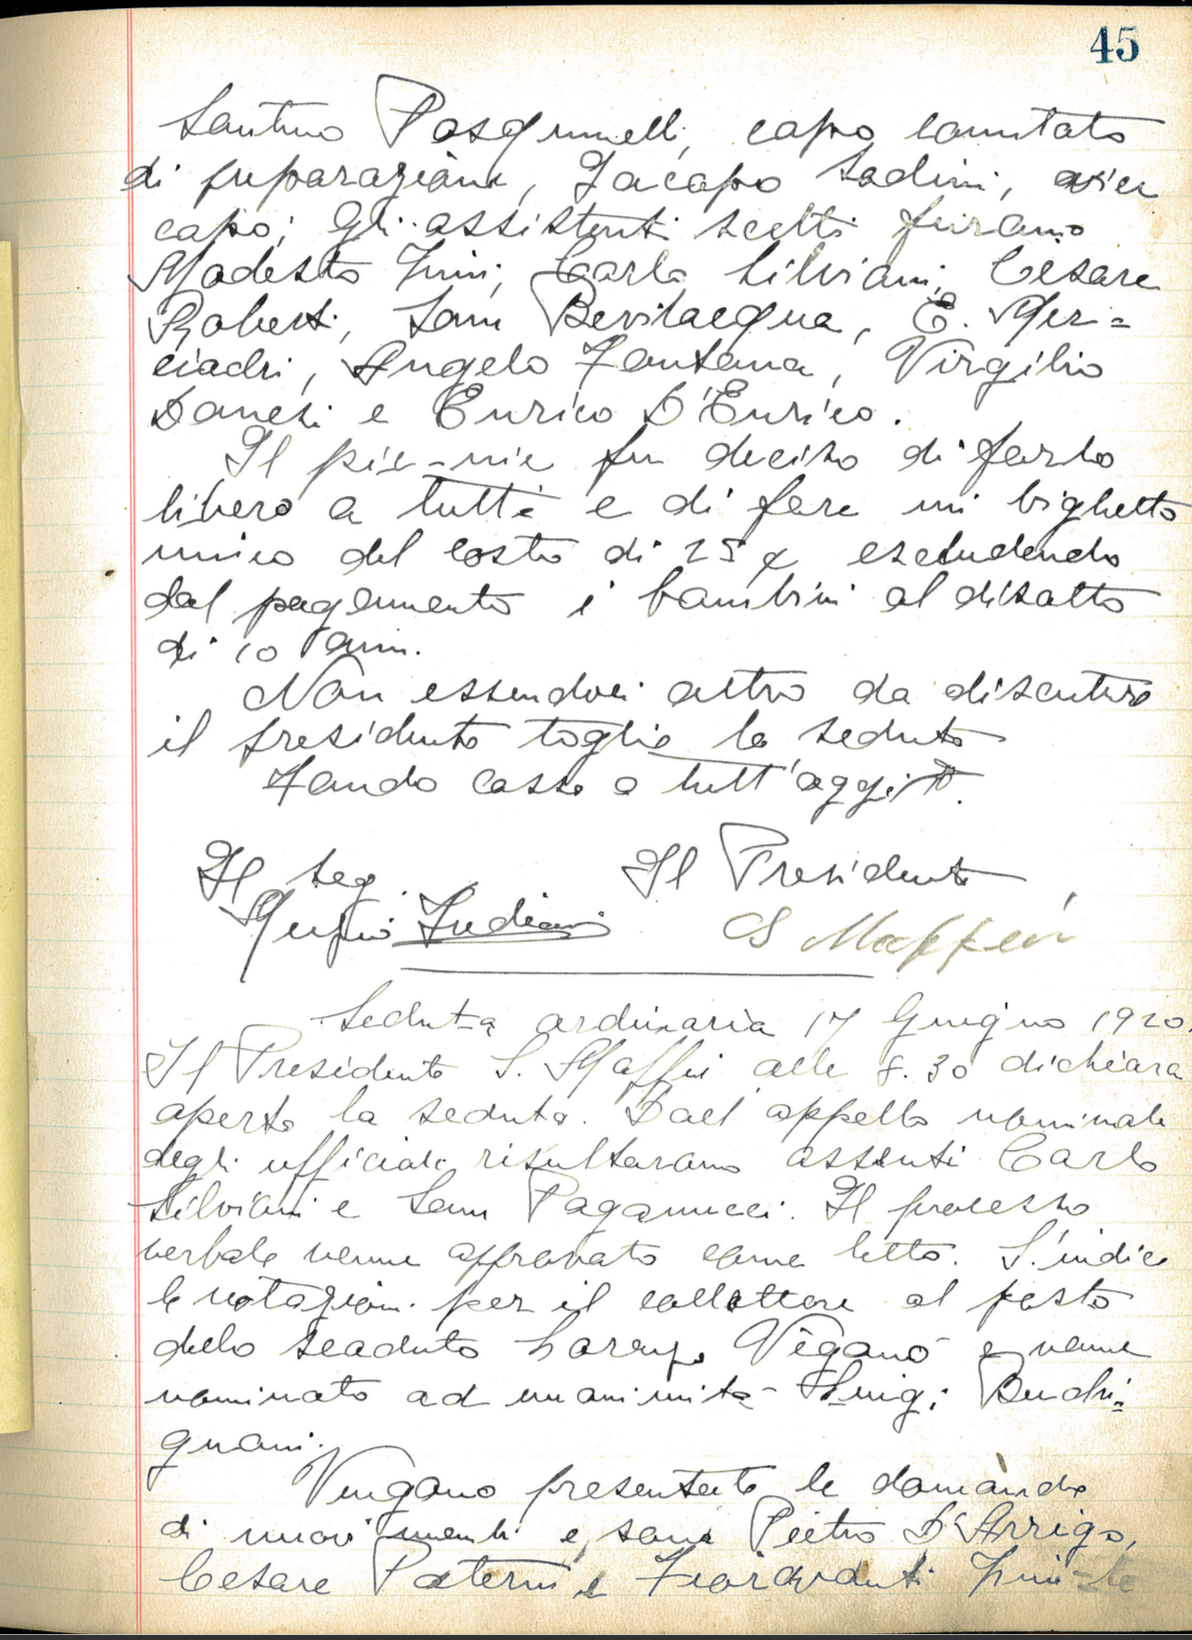 45
Santino Pasquinelli, capo comitato
di preparazione, Jacopo Sodini, vice
capo; gli assistenti scelti furano
Modesto Juni; Carlo Silviani; Cesare
Roberti, Sam Bevilacqua, E. Mer=
ciadri, Angelo Fontana, Virgilio
Danesi e Enrico D'Enrico.
Il pic-nic fu deciso di farlo
libero a tutti e di fare un biglietto
unico del costo di 25 ¢ escludendo
dal pagamento i bambini al disotto
di 10 anni.
Non essendovi altro da discutere
il presidente toglie la seduta
Fondo cassa a tutt'oggi
Il seg. Il Presidente
S Maffei
Seduta ordinaria 17 Giugno 1920.
Il Presidente S. Maffei alle 8.30 dichiara
aperta la seduta. Dall'appello nominale
degli ufficiali risultarano assenti Carlo
Silviani e Sam Paganucci. Il processo
verbale venne approvato come letto. S'indice
le votazioni per il collettore al posto
dello scaduto Vigano e venne
nominato ad unanimità Luigi Buchi=
gnani.
Vengano presentate le domande
di nuovi membri e sono Pietro D'Arrigo,
Cesare Paterni e Fioravanti